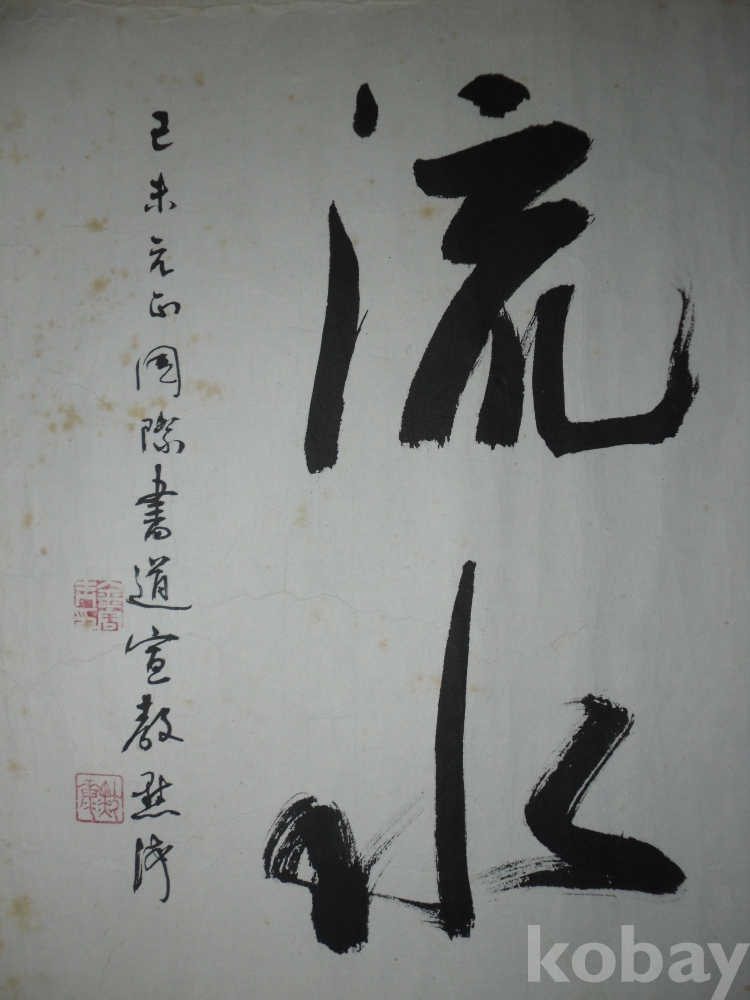 流水
己未元正国際書道宣教
kobay